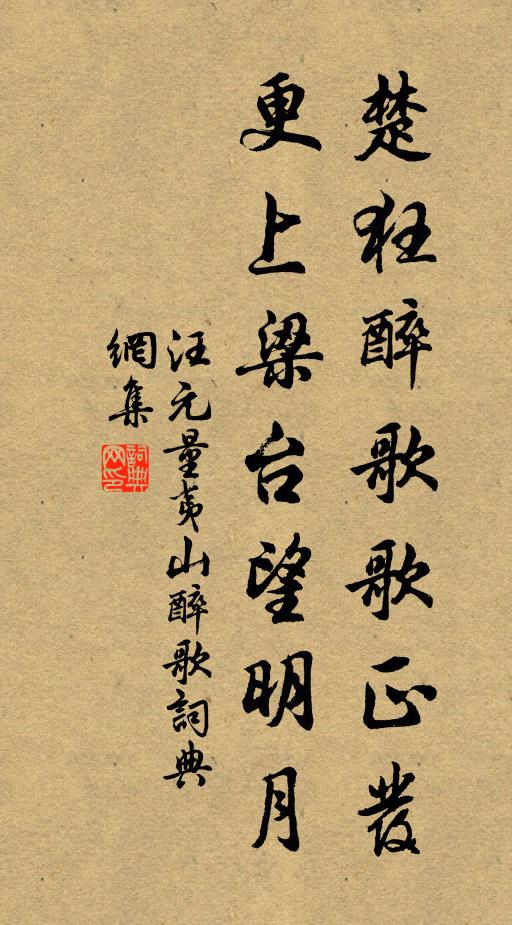 楚狂醉歌歌正發
更上梁台望明月
汪元量夷山醉歌詞典
網集
詞典網印